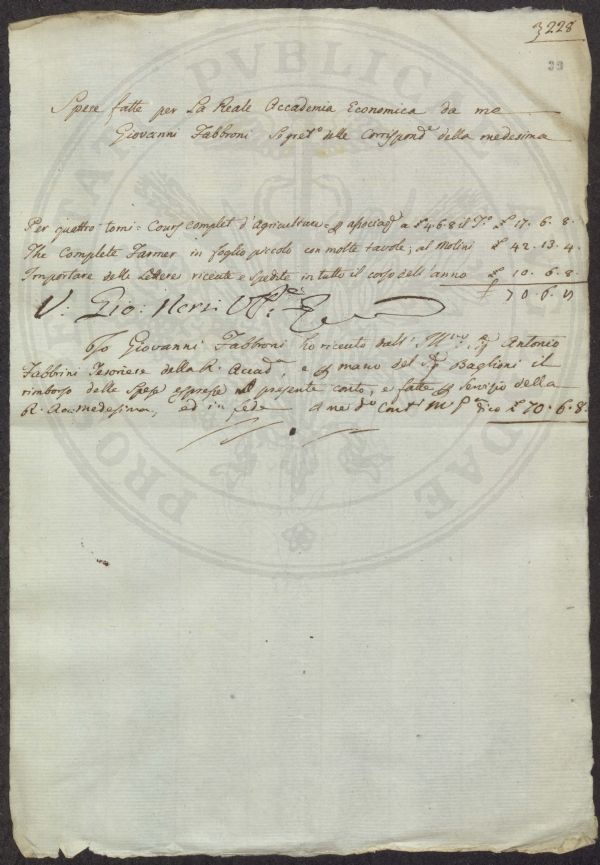 3228
33
Spese fatte per La Reale Accademia Economica da me
Giovanni Fabbroni Segret.º delle Corrispond.e della medesima
Per quattro tomi = Cours complet d'Agriculture = p associaz.e a £ 4.6.8 il T.º £ 17. 6. 8.
The Complete Farmer in foglio piccolo con molte tavole; al Molini £ 42. 13. 4.
Importare delle Lettere ricevute e spedite in tutto il corso dell'anno £ 10. 6. 8.
£ 70. 6. 8
V. Gio: Neri
Io Giovanni Fabbroni ho ricevuto dall' Antonio
Fabbrini Tesoriere della R. Accad.a, e p mano del Sig. Baglioni il
rimborso delle Spese espresse nel presente conto, e fatte p servizio della
R. Acc. medesima, ed in fede £ 70. 6. 8.
PUBLICAE